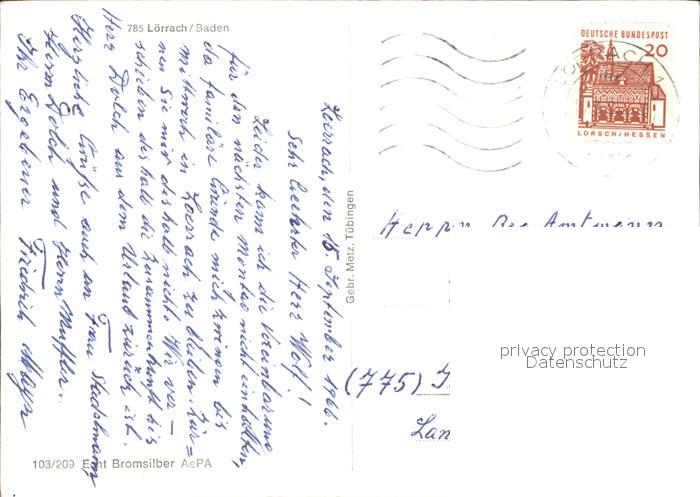 785 Lörrach/Baden
Loerrach, den 15. September 1966.
Sehr Geehrter Herr Wolf!
Leider kann ich die Vereinbarung
für den nächsten Montag nicht einhalten,
da familiäre Gründe mich zwingen bis
Mittwoch in Loerrach zu bleiben. Zür=
nen Sie mir deshalb nicht. Wir ver-
schieben deshalb die Zusammenkunft bis
Herr Dolch aus dem Urlaub zurück ist.
Herzliche Grüße auch an Frau Stadelmann
Herrn Dolch und Herrn Muffler.
Ihr Ergebener Friedrich Mayr
Gebr. Metz, Tübingen
103/209 Echt Bromsilber AePA
DEUTSCHE BUNDESPOST
20
LORSCH/HESSEN
Herrn Reg. Amtmann
(775)
privacy protection
Datenschutz